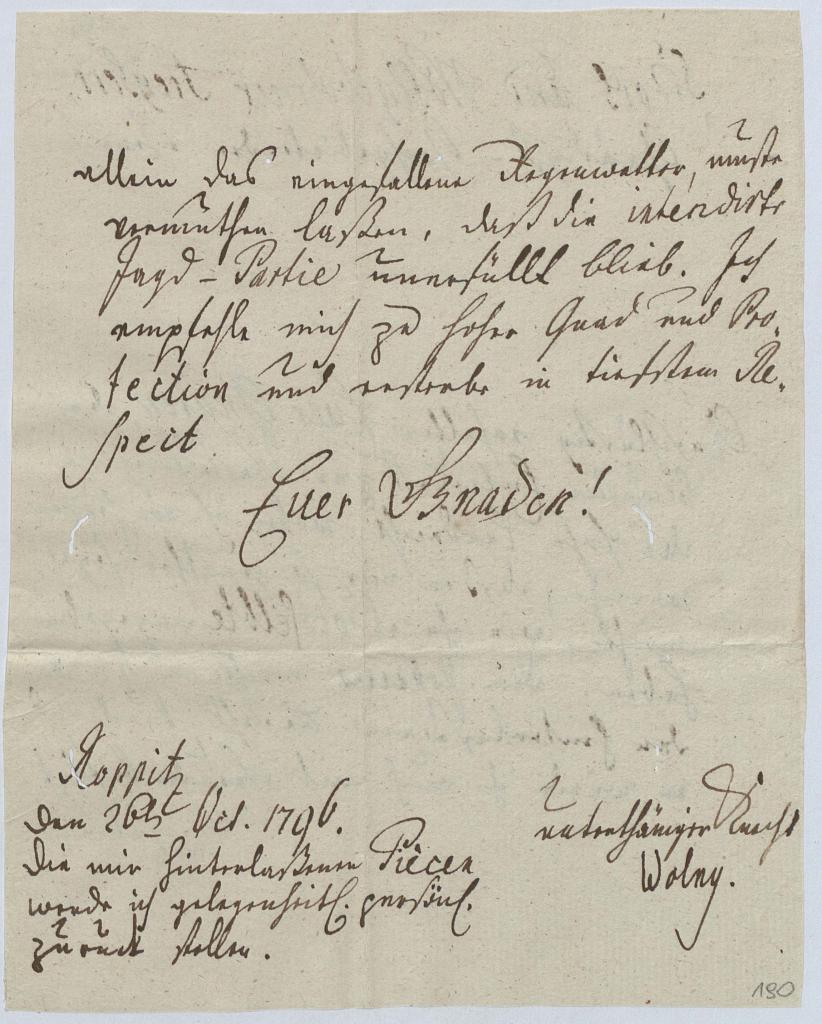 allein das eingefallene Regenwetter, muste
vermuthen laßen, daß die intendirte
Jagd-Partie unerfüllt blieb. Ich
empfehle mich zu hoher Gnad und Pro-
tection und ersterbe in tiefstem Re-
spect
Euer Gnaden!
Roppitz
den 26ten Oct. 1796.
die mir hinterlaßenen Piècen
werde ich gelegenheitl. persönl.
zuruck stellen.
unterthäniger Knecht
Wolny.
190